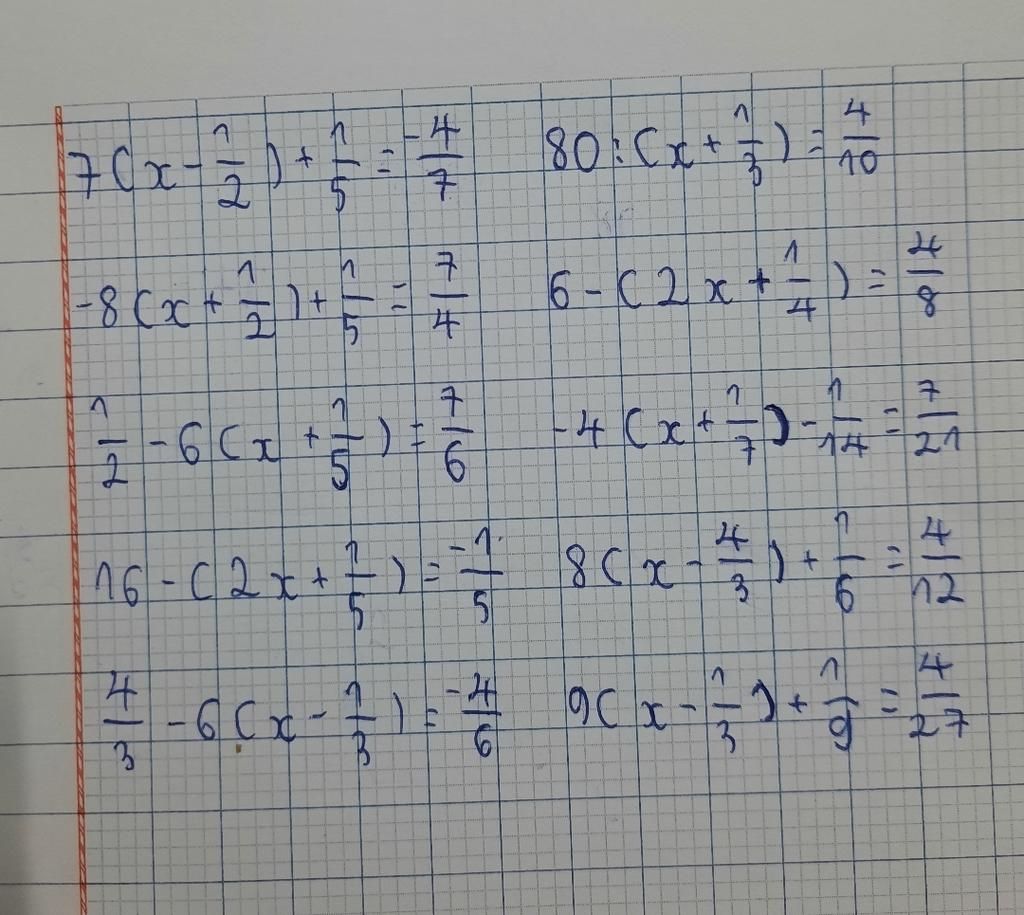 7(x - 1/2) + 1/5 = -4/7    80 : (x + 1/3) = 4/10
-8(x + 1/2) + 1/5 = 7/4    6 - (2x + 1/4) = 4/8
1/2 - 6(x + 1/5) = 7/6    -4(x + 1/7) - 1/14 = 7/21
16 - (2x + 1/5) = -1/5    8(x - 4/3) + 1/6 = 4/12
4/3 - 6(x - 1/3) = -4/6    9(x - 1/3) + 1/9 = 4/27